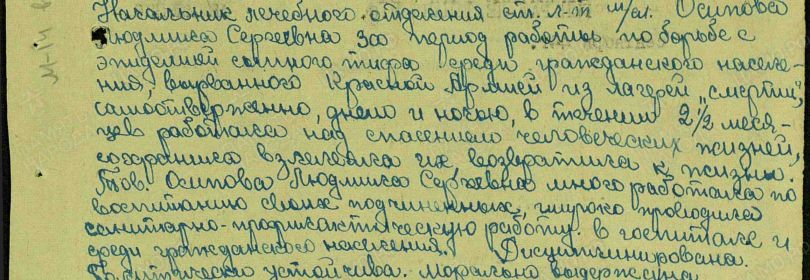 Начальник лечебного отделения ст. л-т м/сл. Осипова
Людмила Сергеевна за период работы по борьбе с
эпидемией сыпного тифа среди гражданского населе-
ния, вырванного Красной Армией из лагерей "смерти",
самоотверженно, днем и ночью, в течении 2 1/2 меся-
цев работала над спасением человеческих жизней,
сохранила взлелеяла их возвратила к жизни.
Тов. Осипова Людмила Сергеевна много работала по
воспитанию своих подчиненных, широко проводила
санитарно-профилактическую работу в госпитале и
среди гражданского населения. Дисциплинирована.
Политически устойчива. морально выдержана